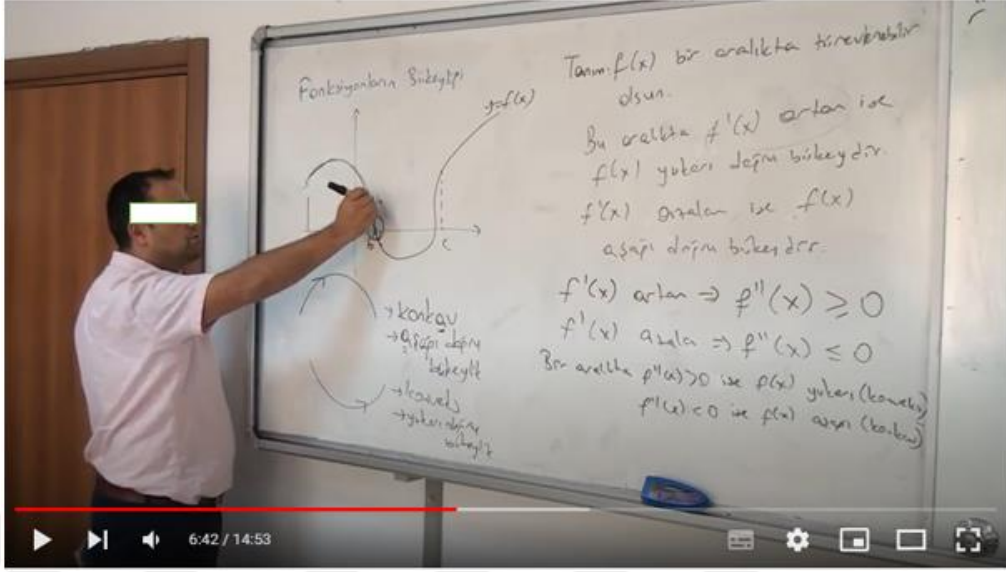 Fonksiyonların Bükeyliği
y=f(x)
b
c
→ konkav
→ aşağı doğru
bükeylik
→ konveks
→ yukarı doğru
bükeylik
Tanım: f(x) bir aralıkta türevlenebilir
olsun.
Bu aralıkta f'(x) artan ise
f(x) yukarı doğru bükeydir.
f'(x) azalan ise f(x)
aşağı doğru bükeydir.
f'(x) artan ⇒ f''(x) ≥ 0
f'(x) azalan ⇒ f''(x) ≤ 0
Bir aralıkta f''(x)>0 ise f(x) yukarı (konveks)
f''(x)<0 ise f(x) aşağı (konkav)
6:42 / 14:53